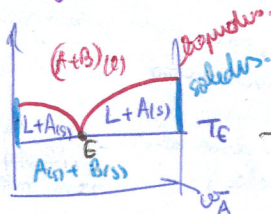 liquidus.
(A+B)(l)
solidus.
L+A(s)
L+A(s)
TE
E
A(s) + B(s)
ωA